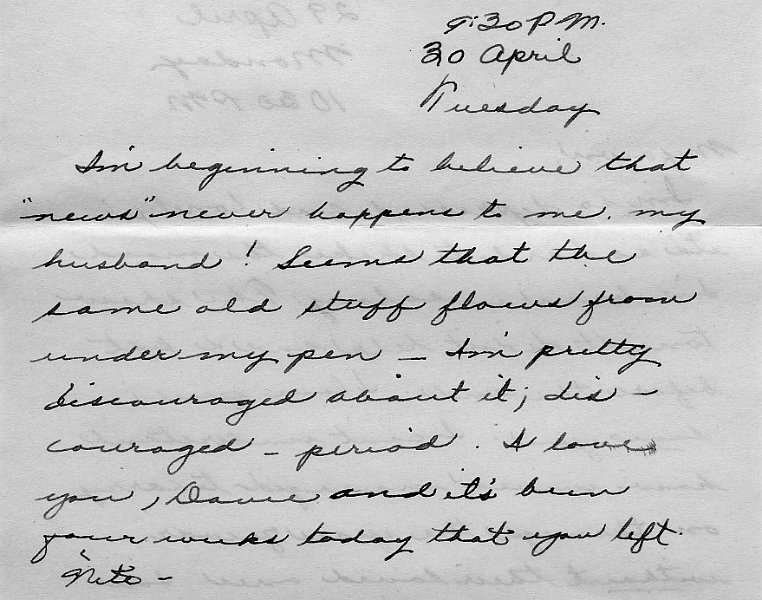 9:30 P.M.
30 April
Tuesday
I'm beginning to believe that
"news" never happens to me, my
husband! Seems that the
same old stuff flows from
under my pen - I'm pretty
discouraged about it; dis-
couraged - period. I love
you, Dave and it's been
four weeks today that you left.